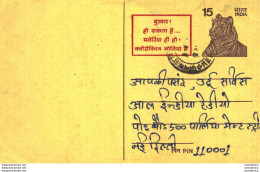 बुखार !
हो सकता है...
मलेरिया ही हो !
क्लोरोक्विन गोलियां लें
15
भारत
INDIA
आपकी पसंद, उर्दू सर्विस
आल इन्डीया रेडीयो
पो. बा. 500 पार्लिया मेन्ट स्ट्रीट
नई दिल्ली
PIN 110001